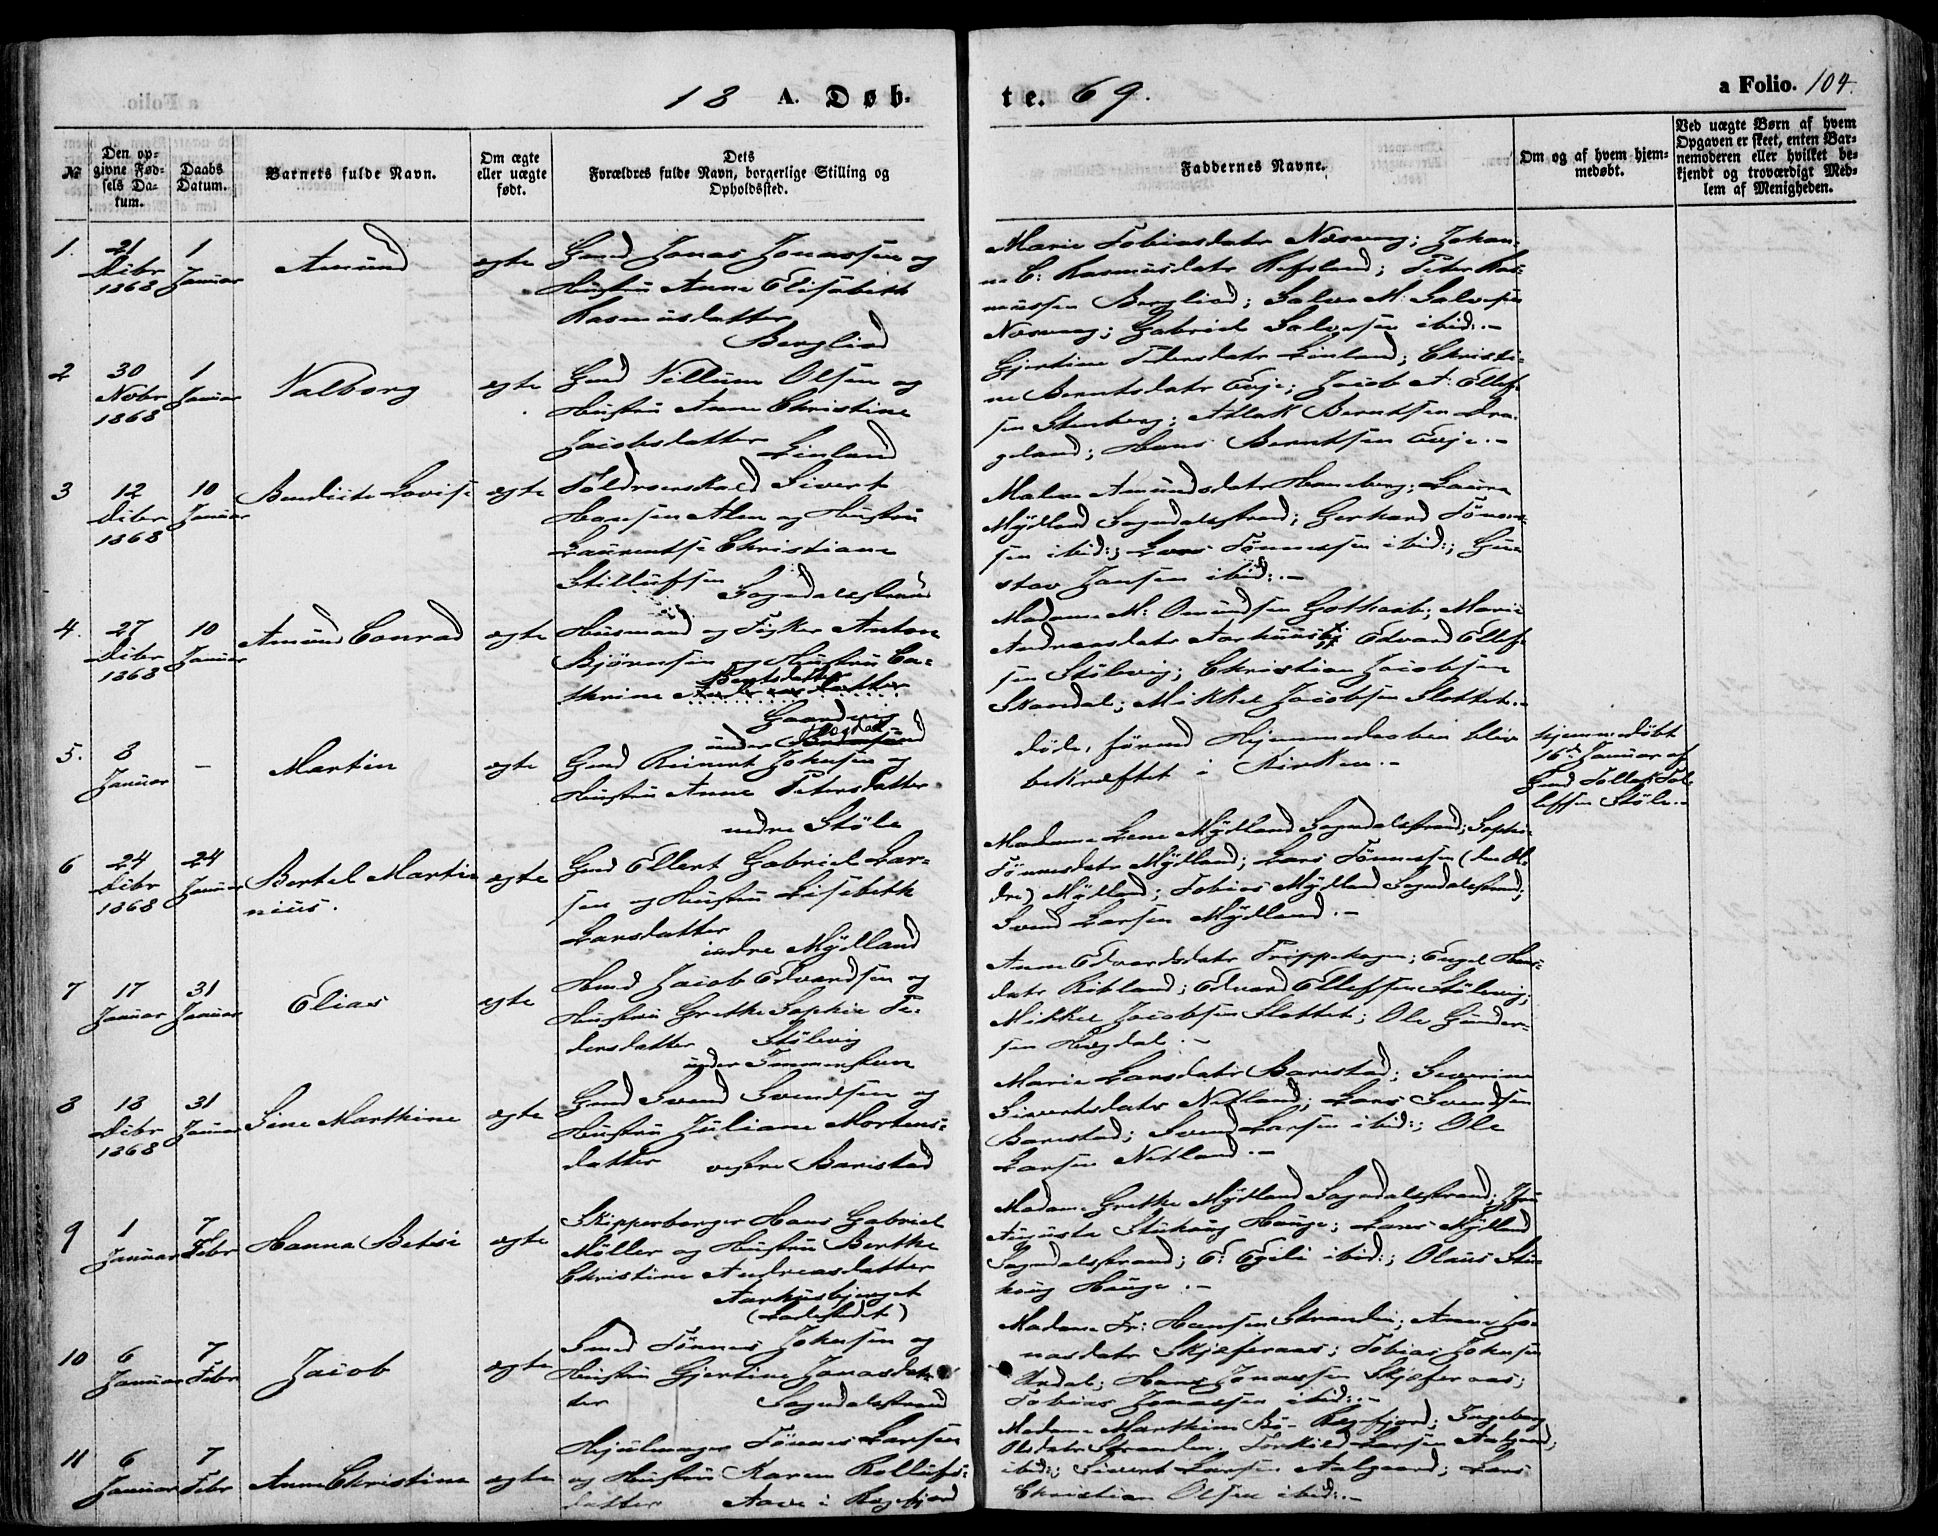 18 A. Døb-
te. 69.
a Folio. 104.
№
Den op-
givne Fød-
sels Da-
tum.
Daabs
Datum.
Barnets fulde Navn.
Om ægte
eller uægte
født.
Dets
Forældres fulde Navn, borgerlige Stilling og
Opholdssted.
Faddernes Navne.
Om og af hvem hjem-
medøbt.
Ved uægte Børn af hvem
Opgaven er skeet, enten Bar-
nemoderen eller hvilket be-
kjendt og troværdigt Med-
lem af Menigheden.
1.
21
Dcbr
1868
1
Januar
Amund
ægte
Gmd Jonas Jonassen og
Hustru Anne Elisabeth
Rasmusdatter
Bergliod
Marie Tobiasdatr Næsvog; Johan-
ne C: Rasmusdatr Refsland; Peter Ras-
mussen Bergliod; Salve M: Salvesen
Næsvog; Gabriel Salvesen ibid:.-
2
30
Novbr
1868
1
Januar
Valborg
ægte
Gmd Villum Olsen og
Hustru Anne Christine
Jacobsdatter Linland
Gjertine Pedersdatr Linland; Christi-
ne Berntsdatr Evje; Jacob A: Ellef-
sen Stenberg; Atlak Berntsen Dra-
geland; Hans Berntsen Evje.-
3
12
Dcbr
1868
10
Januar
Bendicte Lovise
ægte
Toldroerskarl Sivert
Hansen Alen og Hustru
Laurentse Christiane
Stillufsen Sogndalsstrand
Malene Amundsdatr Haneberg; Laura
Mydland Sogndalsstrand; Gerhard Tønnes-
sen ibid:; Lars Tønnessen ibid:; Gu-
stav Jansen ibid:.-
4.
27
Dcbr
1868
10
Januar
Amund Conrad
ægte
Husmand og Fisker Anton
Bjørnsen og Hustru Ca-
thrine Bentsdatter
Gaandvig
under
Madame M: Omundsen Gottaab; Marie
Andreasdatr Aarhuus; Edvard Ellef-
sen Stølsvig; Christian Jacobsen
Skardal; Mikkel Jacobsen Slottet.-
5.
8
Januar
-
Martin
ægte
Gmd Reinert Johnsen og
Hustru Anne Petersdatter
nedre Støle
døde, førend Hjemmedaaben blev
bekræftet i Kirken.-
hjemmedøbt
16de Januar af
Gmd Tollak Tol-
lefsen Støle.-
6
24
Dcbr
1868
24
Januar
Bertel Marti-
nius.
ægte
Gmd Ellert Gabriel Lar-
sen og Hustru Lisebeth
Larsdatter
indre Mydland
Madame Lene Mydland Sogndalsstrand; Sophie
Tønnesdatr Mydland; Lars Tønnessen (den Æl-
dre) Mydland; Tobias Mydland Sogndalsstrand;
Svend Larsen Mydland.-
7
17
Januar
31
Januar
Elias
ægte
Hmd Jacob Edvardsen og
Hustru Grethe Sophie Pe-
dersdatter Stølsvig
under Immerstein
Anne Edvardsdatr Trippehagen; Engel Hans-
datr Ribland; Edvard Ellefsen Stølsvig;
Mikkel Jacobsen Slottet; Ole Gunder-
sen Høgdal.-
8
18
Dcbr
1868
31
Januar
Sine Marthine
ægte
Gmd Svend Svendsen og
Hustru Juliane Mortens-
datter vestre Barestad
Marie Larsdatr Barestad; Severine
Sivertsdatr Netland; Lars Svendsen
Barestad; Svend Larsen ibid:; Ole
Larsen Netland.-
9
1
Januar
7
Febr
Hanna Betsi
ægte
Skipperborger Hans Gabriel
Møller og Hustru Berthe
Christine Andreasdatter
Aarhusbjerget
(Ladestedet)
Madam Grethe Mydland Sogndalsstrand; Jfru
Auguste Stuhoug Hauge; Lars Mydland
Sogndalsstrand; E: Egeli ibid:; Olaus Stu-
houg Hauge.-
10
6
Januar
7
Febr
Jacob
ægte
Smed Tønnes Johnsen og
Hustru Gjertine Jonasdat-
ter Sogndalsstrand
Madame Fr: Hansen Stranden; Anne Jo-
nasdatr Skjeferaas; Tobias Johnsen
Ardal; Hans Jonassen Skjeferaas;
Tobias Jonassen ibid:.-
11
6
Januar
7
Febr
Anne Christine
ægte
Hjulmager Tønnes Larsen
og Hustru Karen Rollufs-
datter Aave i Rægefjord
Madame Marthine Bø- Rægefjord; Ingeborg
Olsdatr Stranden; Torkild Larsen Aalgaard;
ibid:; Sivert Larsen Aalgaard; Lars
Christian Olsen ibid:.-